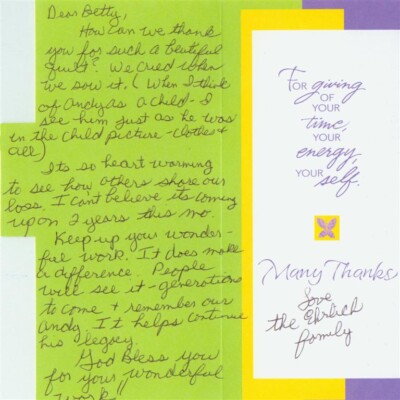 Dear Betty,
How can we thank
you for such a beatiful
quilt? We cried when
we sow it. (When I think
of Andy as a child - I
see him just as he was
in the child picture - clothes &
all)
Its so heart warming
to see how others share our
loss. I can't believe its coming
upon 2 years this mo.
Keep-up your wonder-
ful work. It does make
a difference. People
will see it - generations
to come & remember our
Andy. It helps continue
his legacy.
God Bless you
for your wonderful
work
For giving
of
your
time,
your
energy,
your self.
Many Thanks
Love
the Ehrlich
family